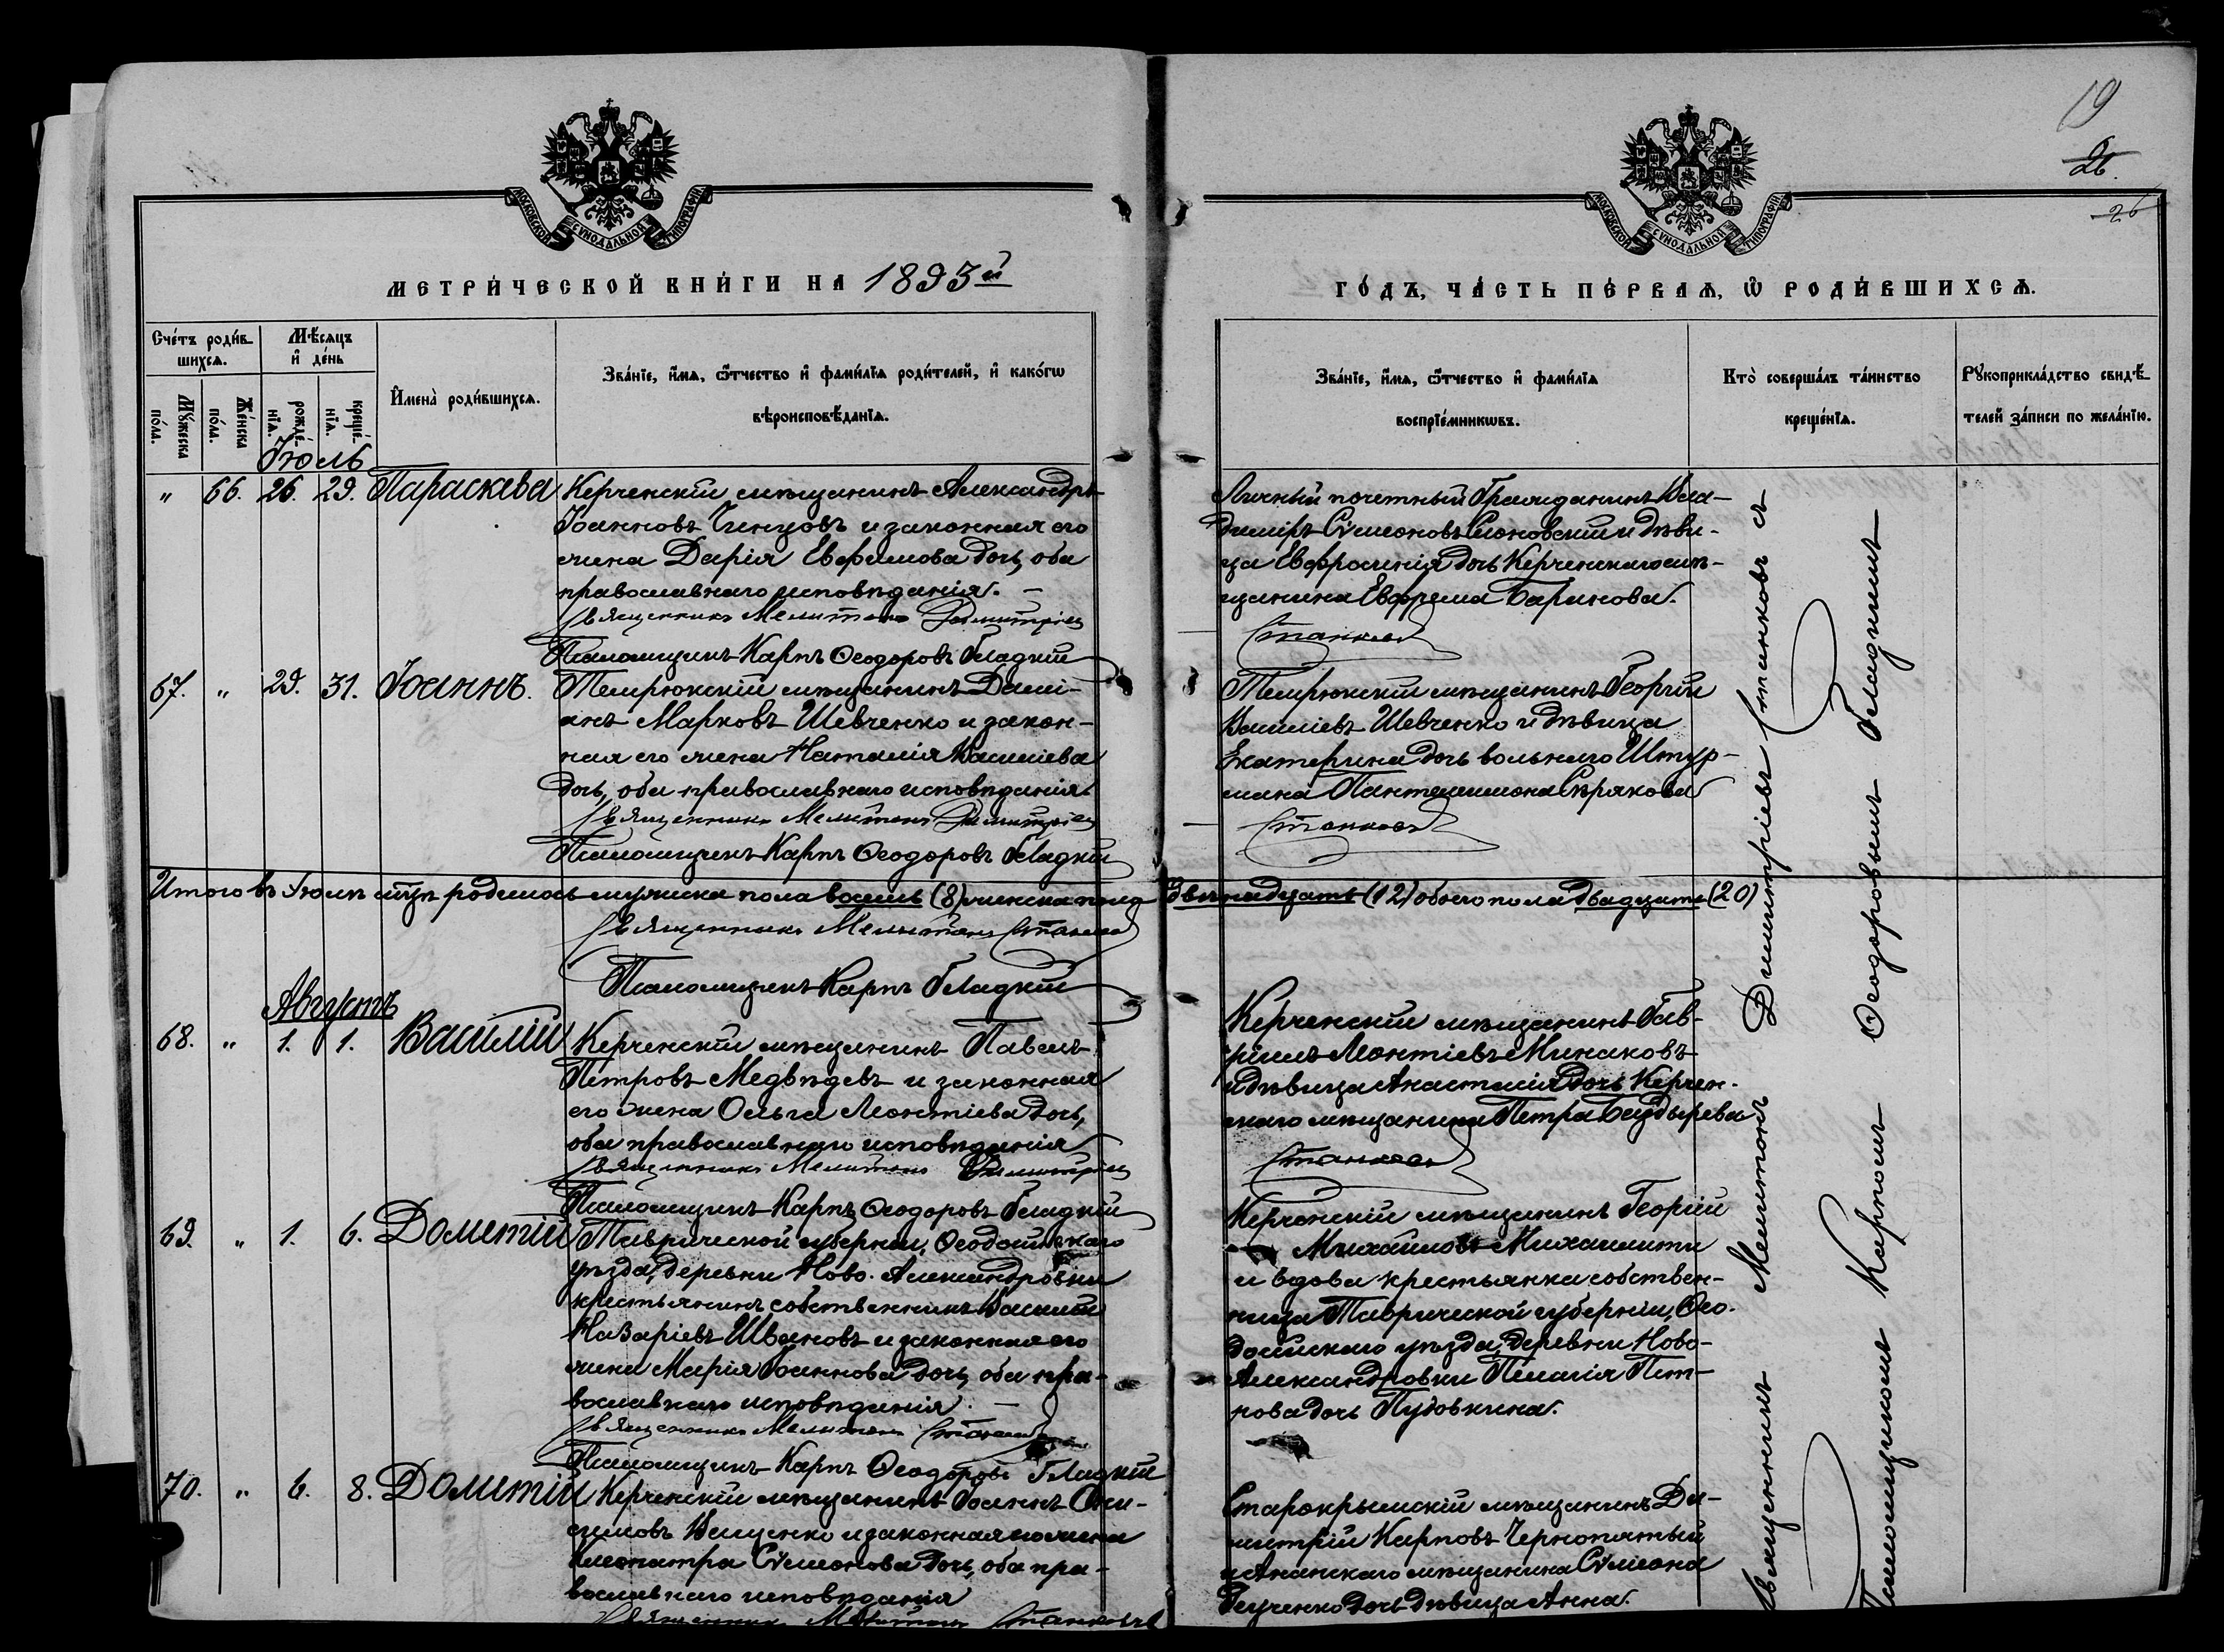 19
26.
26
МОСКОВСКОЙ СѴНОДАЛЬНОЙ ТИПОГРАФІИ
МОСКОВСКОЙ СѴНОДАЛЬНОЙ ТИПОГРАФІИ
МЕТРИ́ЧЕСКОЙ КНИ́ГИ НА 1893й
ГО́ДЪ, ЧА́СТЬ ПЕ́РВАѦ, Ѡ҆ РОДИ́ВШИХСѦ.
Сче́тъ роди́в-
шихсѧ.
Мѣ́сѧцъ
и҆ де́нь
Мꙋ́жеска
по́ла.
Же́нска
по́ла.
рожде́-
нїѧ.
креще́-
нїѧ.
И҆мена̀ роди́вшихсѧ.
Зва́нїе, и҆́мѧ, ѻ҆́тчество и҆ фами́лїѧ роди́телей, и҆ како́гѡ
вѣроисповѣ́данїѧ.
Зва́нїе, и҆́мѧ, ѻ҆́тчество и҆ фами́лїѧ
воспрїе́мникѡвъ.
Кто̀ соверша́лъ та́инство
креще́нїѧ.
Рꙋкоприкла́дство свидѣ́-
телей за́писи по жела́нїю.
Іюль
" 66. 26. 29. Параскева
Керченскій мѣщанинъ Александръ
Іоанновъ Чинцовъ и законная его
жена Дарія Евфимова дочь, оба
православнаго исповѣданія. —
Священникъ Мелитонъ Димитріев
Псаломщикъ Карпъ Ѳеодоровъ Гладкій
Личный почетный Гражданинъ Вла-
димиръ Сѵмеоновъ и дѣви-
ца Евфросинія дочь Керченскаго мѣ-
щанина Ефрема Баринова.
Станков
67. " 29. 31. Іоаннъ.
Темрюкскій мѣщанинъ Дамі-
анъ Марковъ Шевченко и закон-
ная его жена Наталія Василіева
дочь, оба православнаго исповѣданія
Священникъ Мелитонъ Димитріев
Псаломщикъ Карпъ Ѳеодоровъ Гладкій
Темрюкскій мѣщанинъ Георгій
Василіевъ Шевченко и дѣвица
Екатерина дочь вольнаго Штур-
мана Пантелеимона Сѣрякова
Станков
Итого въ Іюлѣ мцѣ родилось мужеска пола восемь (8) женска пола двѣнадцать (12) обоего пола двадцать (20)
Священникъ Мелитонъ Станков
Псаломщикъ Карпъ Гладкій
Августъ
68. " 1. 1. Василій
Керченскій мѣщанинъ Павелъ
Петровъ Медвѣдевъ и законная
его жена Ольга Леонтіева дочь,
оба православнаго исповѣданія
Священникъ Мелитонъ Димитріев
Псаломщикъ Карпъ Ѳеодоровъ Гладкій
Керченскій мѣщанинъ Гав-
ріилъ Леонтіевъ Минаковъ
и дѣвица Анастасія дочь Керчен-
скаго мѣщанина Петра Баздырева
Станков
69. " 1. 6. Дометій
Таврической губерніи, Ѳеодосійскаго
уѣзда, деревни Ново-Александровки
крестьянинъ собственникъ Василій
Назаріевъ Швановъ и законная его
жена Марія Іоаннова дочь, оба пра-
вославнаго исповѣданія. —
Священникъ Мелитонъ Станков
Псаломщикъ Карпъ Ѳеодоровъ Гладкій
Керченскій мѣщанинъ Георгій
Михайловъ Михаилити
и вдова крестьянка собствен-
ница Таврической губерніи, Ѳео-
досійскаго уѣзда, деревни Ново-
Александровки Пелагія Пет-
рова дочь Пудовкина.
70. " 6. 8. Дометій
Керченскій мѣщанинъ Іоаннъ Они-
симовъ Ващенко и законная его жена
Клеопатра Сѵмеонова дочь, оба пра-
вославнаго исповѣданія
Священникъ Мелитонъ Станковъ
Старокрымскій мѣщанинъ Ди-
митрій Карповъ Чернопятый
и Ананскаго мѣщанина Сѵмеона
дочь дѣвица Анна.
Священникъ Мелитонъ Димитріевъ Станковъ съ
Псаломщикомъ Карпомъ Ѳеодоровымъ Гладкимъ